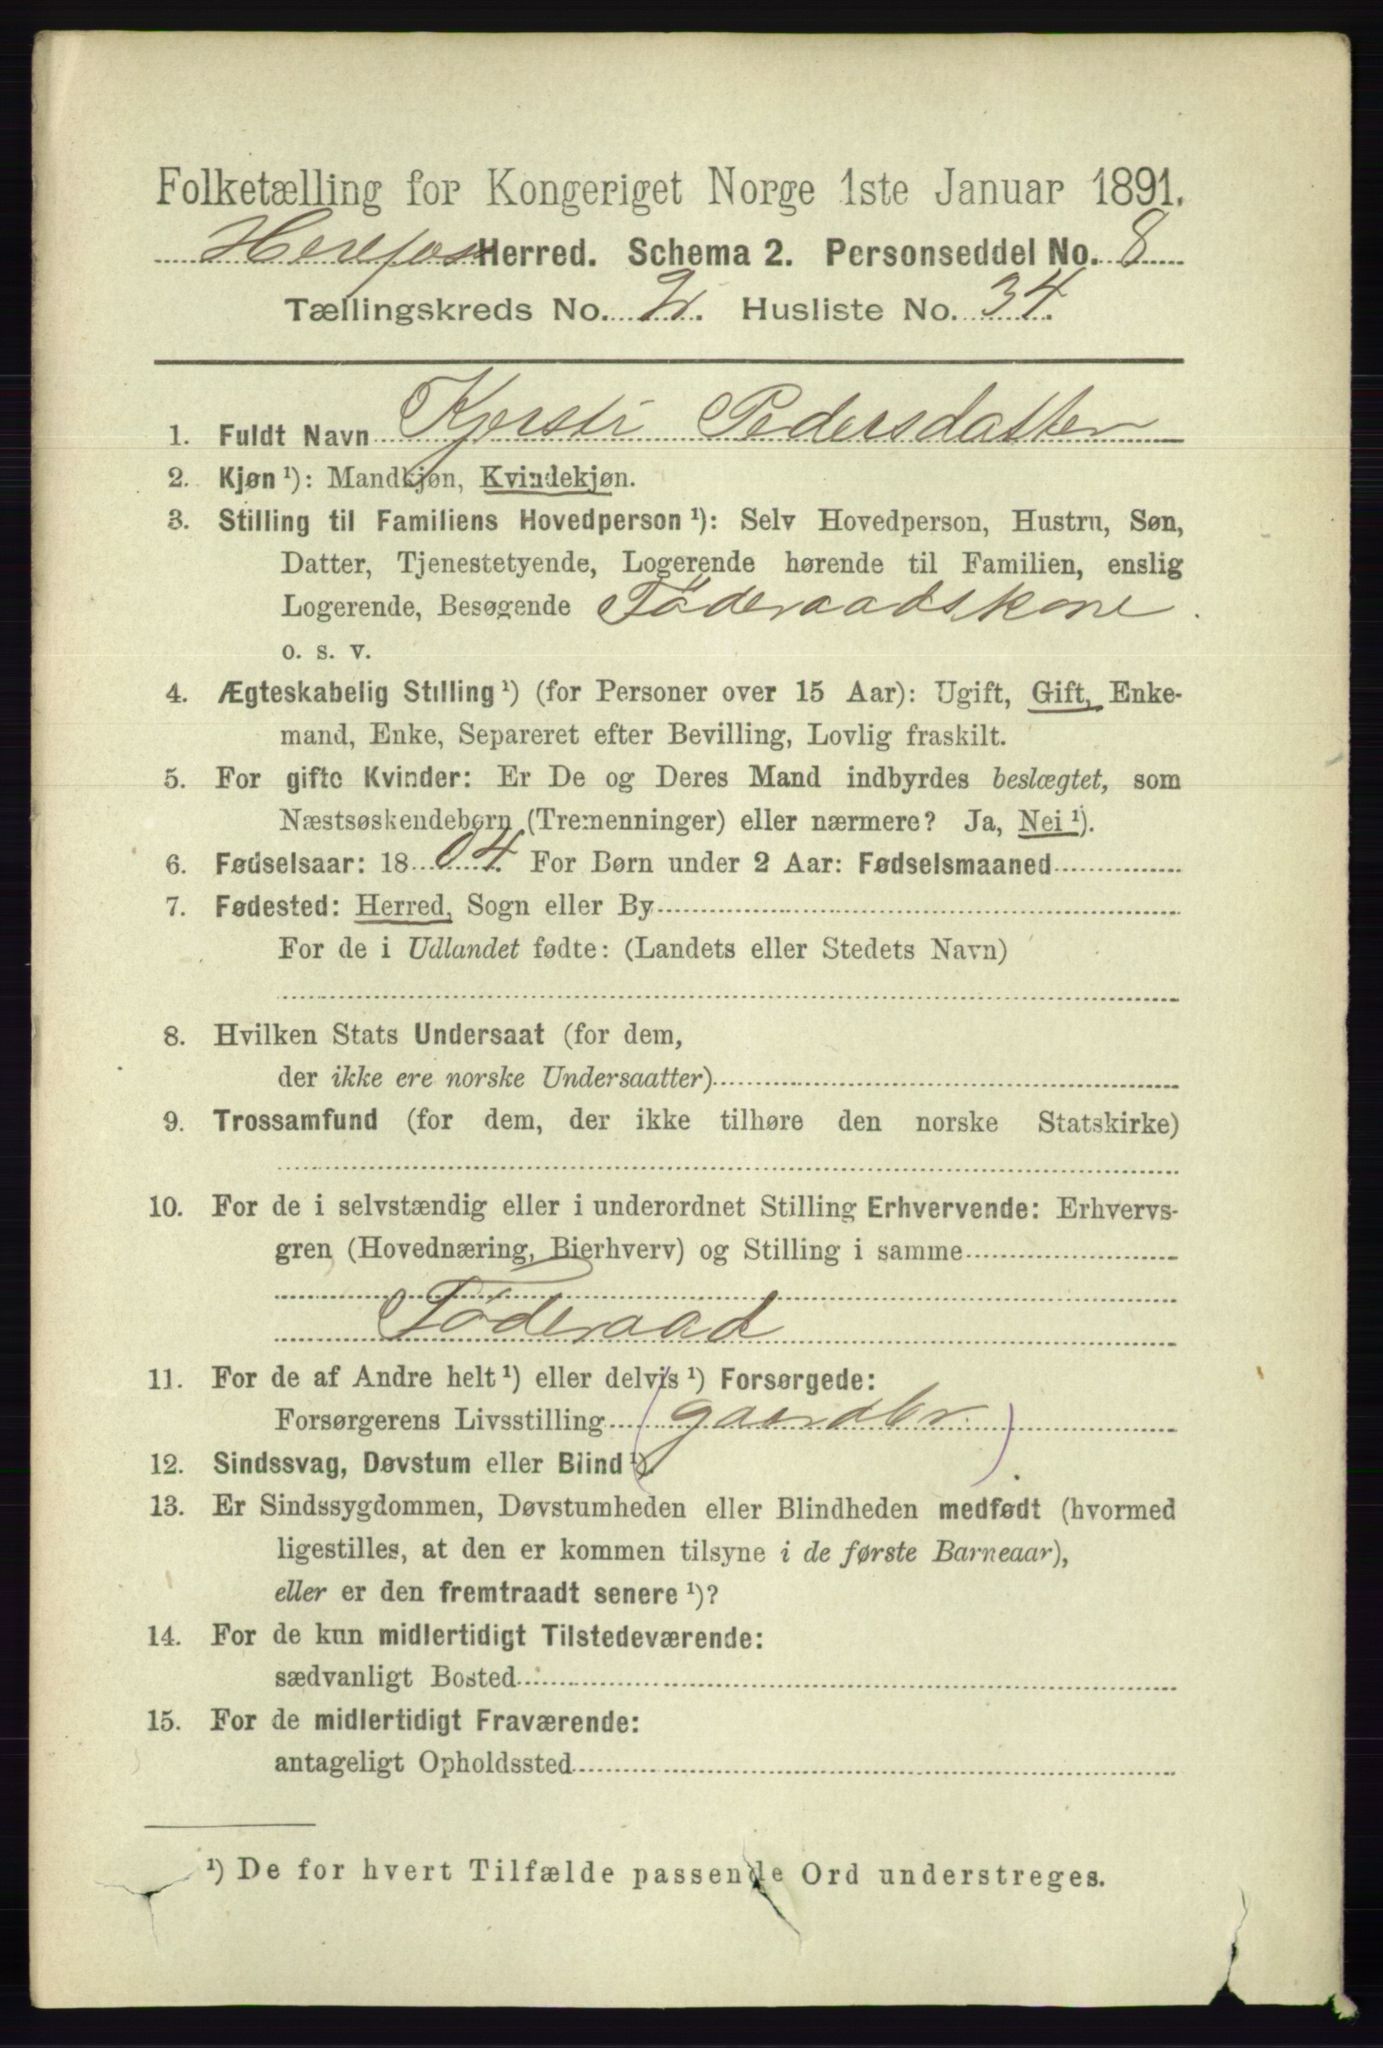 Folketælling for Kongeriget Norge 1ste Januar 1891.
Herefos Herred. Schema 2. Personseddel No. 8
Tællingskreds No. 2. Husliste No. 34.
1. Fuldt Navn Kjersti Pedersdatter
2. Kjøn ¹): Mandkjøn, Kvindekjøn.
3. Stilling til Familiens Hovedperson ¹): Selv Hovedperson, Hustru, Søn,
Datter, Tjenestetyende, Logerende hørende til Familien, enslig
Logerende, Besøgende Föderaadskone.
o. s. v.
4. Ægteskabelig Stilling ¹) (for Personer over 15 Aar): Ugift, Gift, Enke-
mand, Enke, Separeret efter Bevilling, Lovlig fraskilt.
5. For gifte Kvinder: Er De og Deres Mand indbyrdes beslægtet, som
Næstsøskendebørn (Tremenninger) eller nærmere? Ja, Nei ¹).
6. Fødselsaar: 1804. For Børn under 2 Aar: Fødselsmaaned
7. Fødested: Herred, Sogn eller By
For de i Udlandet fødte: (Landets eller Stedets Navn)
8. Hvilken Stats Undersaat (for dem,
der ikke ere norske Undersaatter)
9. Trossamfund (for dem, der ikke tilhøre den norske Statskirke)
10. For de i selvstændig eller i underordnet Stilling Erhvervende: Erhvervs-
gren (Hovednæring, Bierhverv) og Stilling i samme
Föderaad
11. For de af Andre helt ¹) eller delvis ¹) Forsørgede:
Forsørgerens Livsstilling (gaardbr.)
12. Sindssvag, Døvstum eller Blind ¹).
13. Er Sindssygdommen, Døvstumheden eller Blindheden medfødt (hvormed
ligestilles, at den er kommen tilsyne i de første Barneaar),
eller er den fremtraadt senere ¹)?
14. For de kun midlertidigt Tilstedeværende:
sædvanligt Bosted
15. For de midlertidigt Fraværende:
antageligt Opholdssted
¹) De for hvert Tilfælde passende Ord understreges.